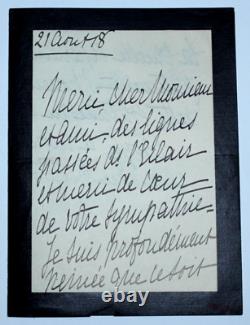 21 Aout 18
Merci, cher Monsieur
et ami, des lignes
passées de l'Eclair
et merci de cœur
de votre sympathie –
Je suis profondément
peinée que ce soit
© thebru